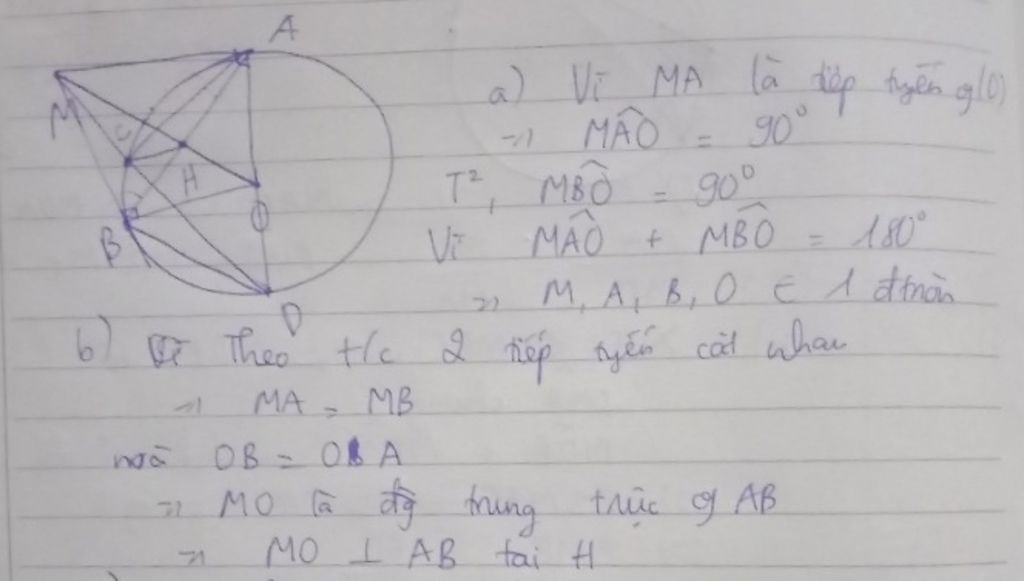 A
M
C
H
B
O
D
a) Vì MA là tiếp tuyến of (O)
=> MÂO = 90°
T², MB̂O = 90°
Vì MÂO + MB̂O = 180°
=> M, A, B, O ∈ 1 đtròn
b) Theo t/c 2 tiếp tuyến cắt nhau
=> MA = MB
mà OB = OA
=> MO là đg trung trực of AB
=> MO ⊥ AB tại H